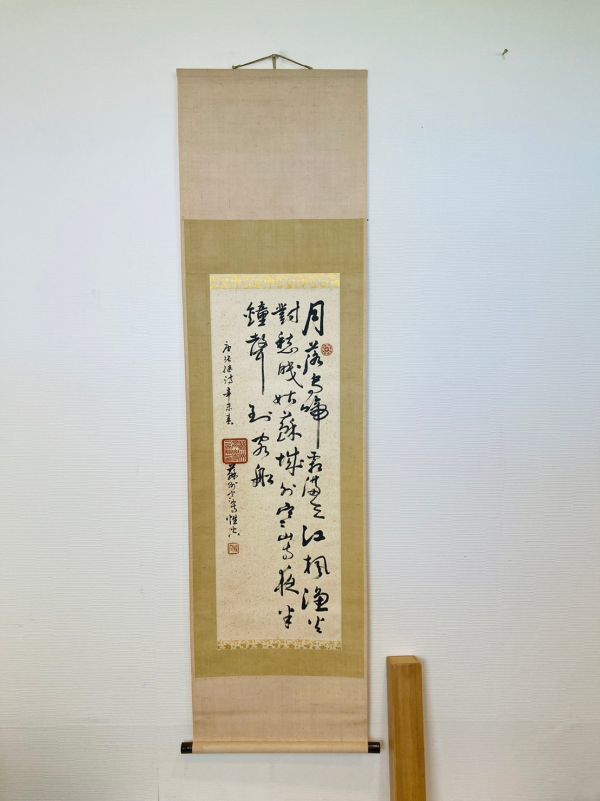 月落烏啼霜滿天江楓漁火
對愁眠姑蘇城外寒山寺夜半
鐘聲到客船
唐張繼詩辛未春
蘇州寒山寺性空